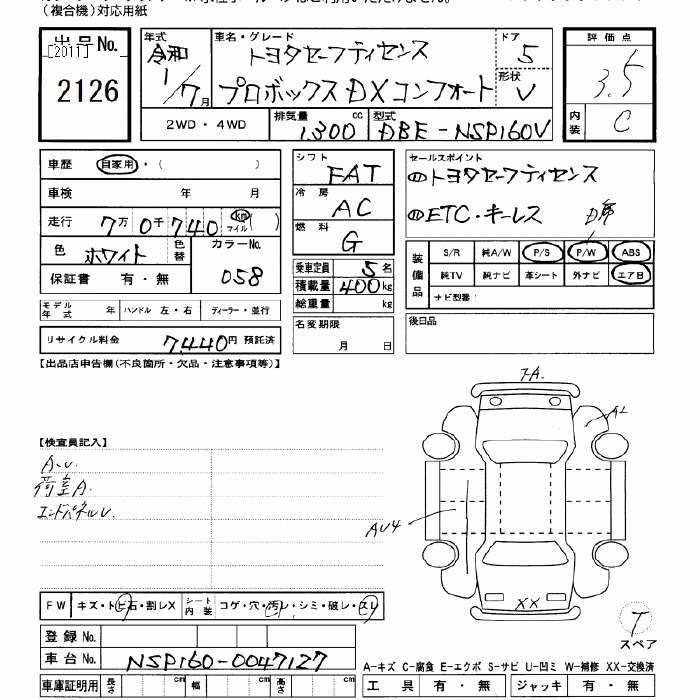 (複合機)対応用紙
出品No.
[2011]
2126
年式 令和 1/7月
車名・グレード
トヨタセーフティセンス
プロボックス DXコンフォート
ドア 5
形状 V
評価点
3.5
内装 C
2WD・4WD
排気量 1,300 cc
型式 DBE-NSP160V
車歴 自家用・( )
車検 年 月
走行 7万0千740 km マイル( )
色 ホワイト 色替 カラーNo. 058
保証書 有・無
シフト FAT
冷房 AC
燃料 G
セールスポイント
①トヨタセーフティセンス
⑪ETC・キーレス
装備品
S/R 純A/W P/S P/W ABS
純TV 純ナビ 革シート 外ナビ エアB
ナビ型番:
乗車定員 5名
積載量 400kg
総重量 kg
モデル年式 年 ハンドル 左・右 ディーラー・並行
名変期限 月 日
後日品
リサイクル料金 7,440円 預託済
【出品店申告欄(不良箇所・欠品・注意事項等)】
【検査員記入】
A.U.
荷室A.
エンドパネルU.
7A.
A2
AU4
XX
FW キズ・トビ石・割レX
シート内装 コゲ・穴・汚レ・シミ・破レ・スレ
登録No.
車台No. NSP160-0047127
T
スペア
A-キズ C-腐食 E-エクボ S-サビ U-凹ミ W-補修 XX-交換済
車庫証明用 長さ cm 幅 cm 高さ cm
工具 有・無 ジャッキ 有・無